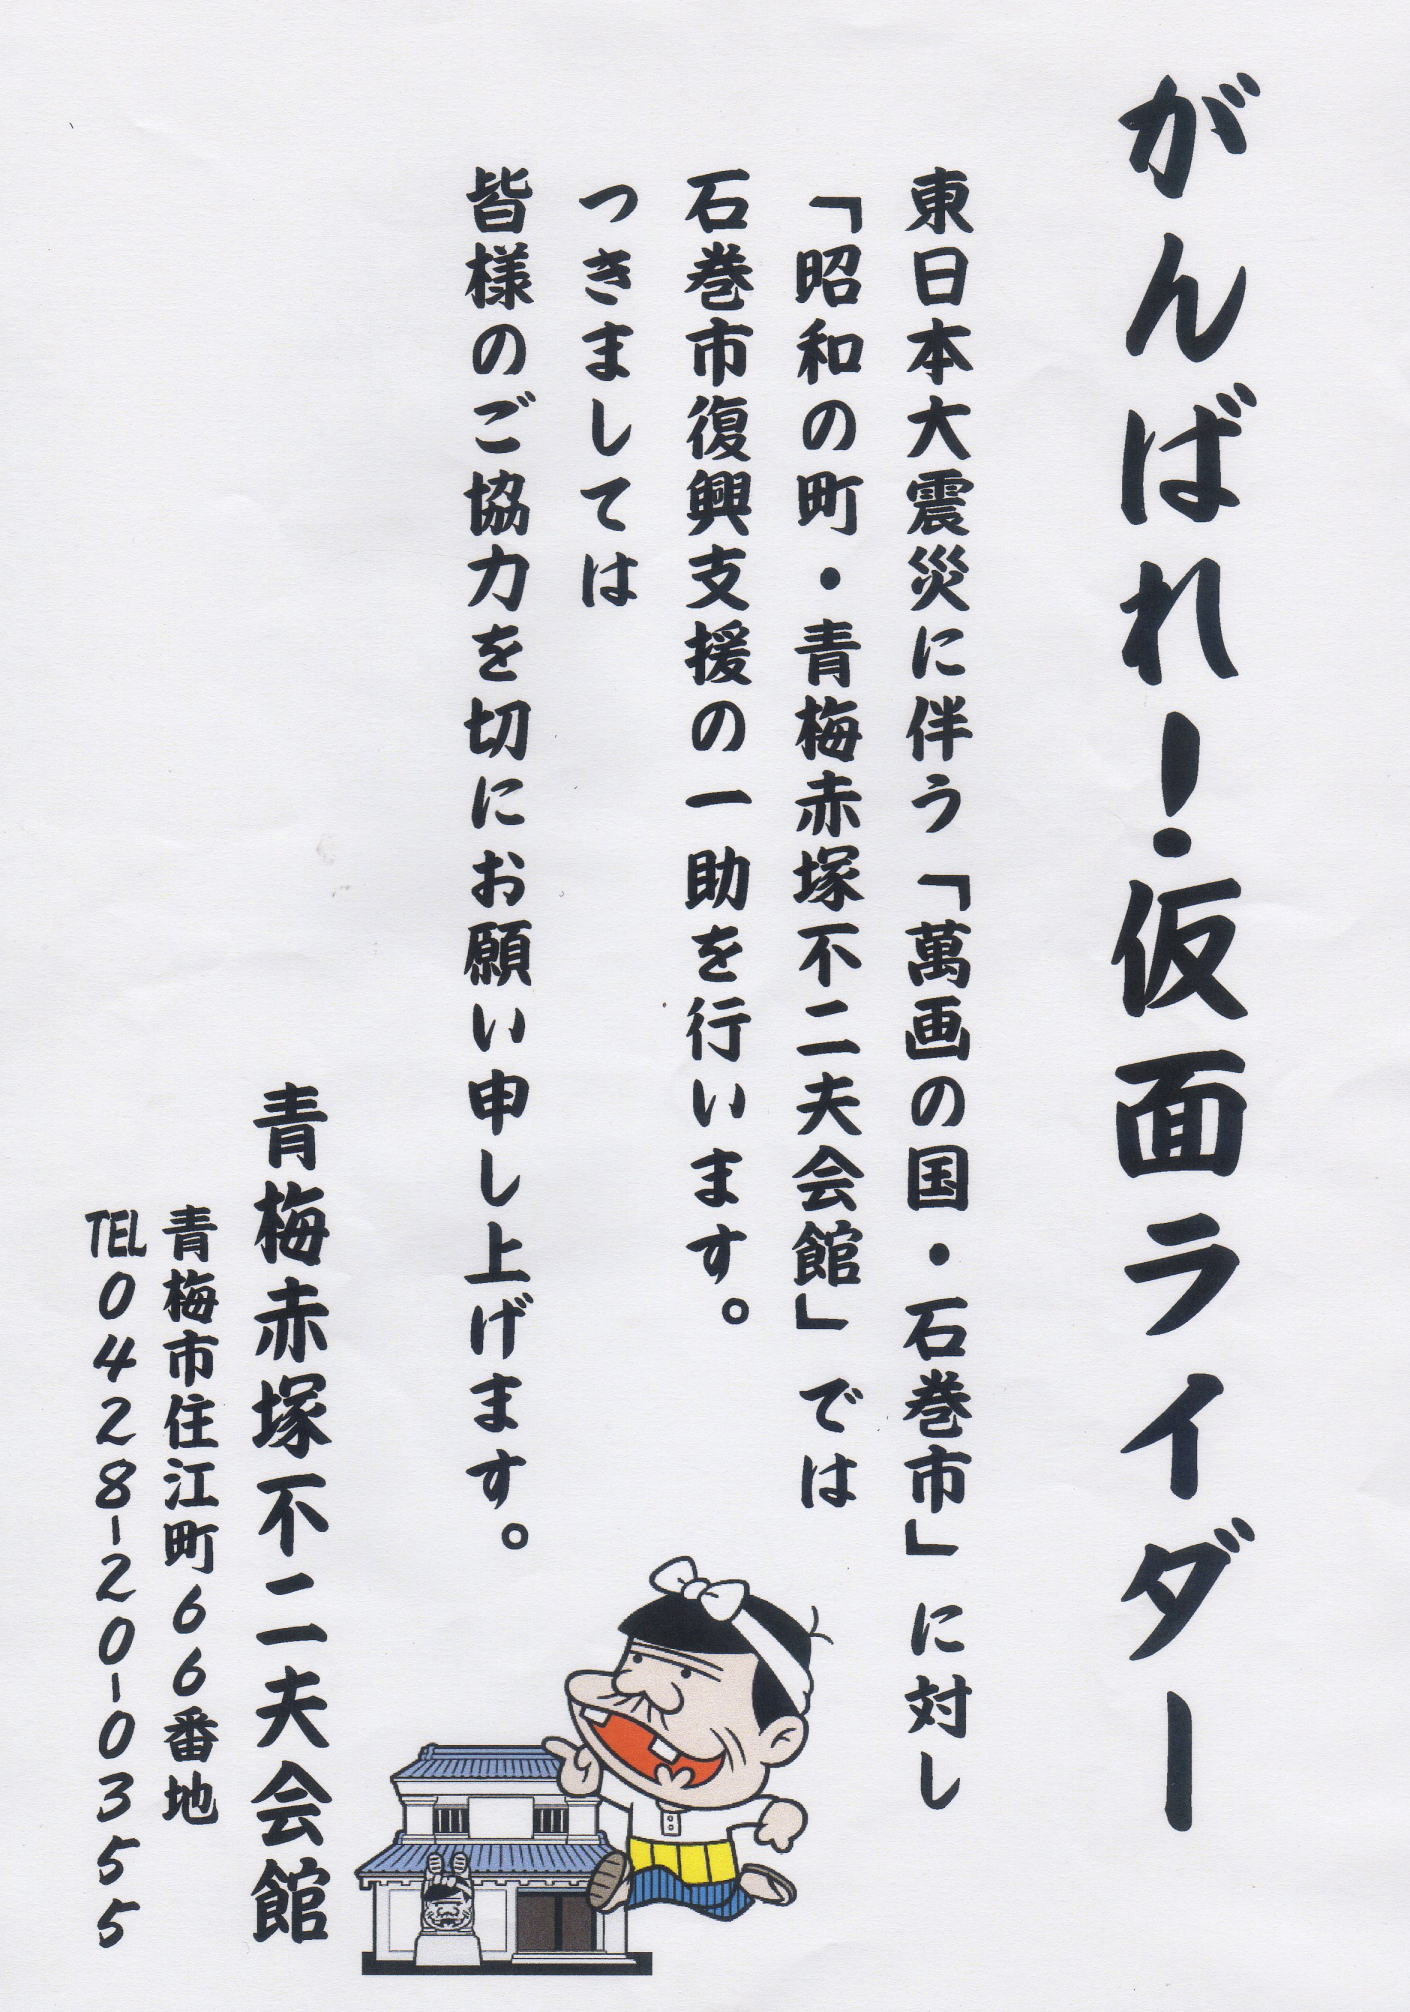 がんばれ！仮面ライダー
東日本大震災に伴う「萬画の国・石巻市」に対し
「昭和の町・青梅赤塚不二夫会館」では
石巻市復興支援の一助を行います。
つきましては
皆様のご協力を切にお願い申し上げます。
青梅赤塚不二夫会館
青梅市住江町66番地
TEL0428-20-0355